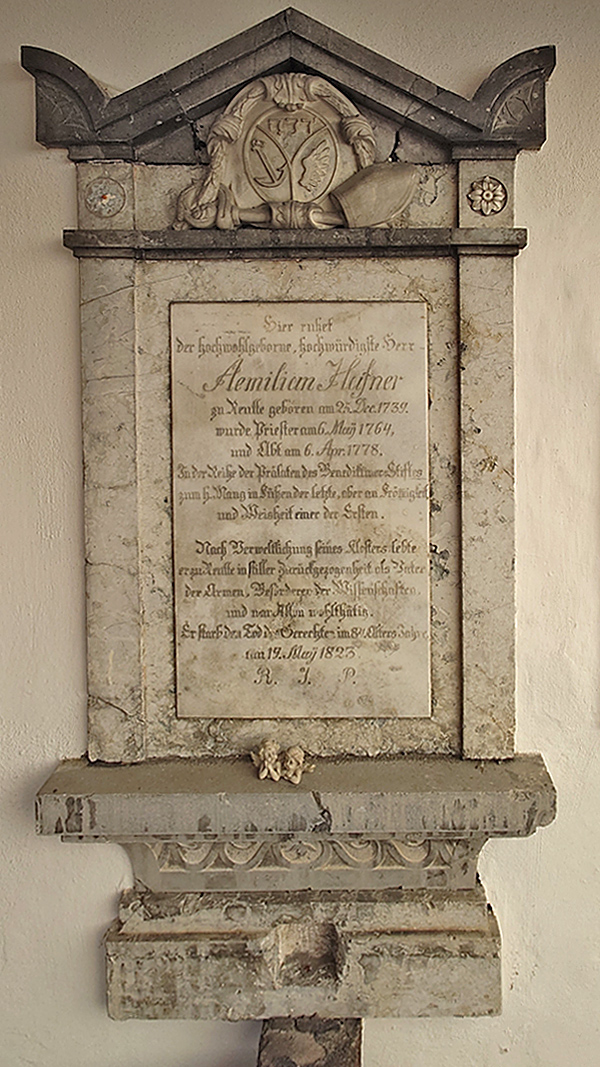 Hier ruhet
der hochwohlgeborne, hochwürdigste Herr
Aemilian Hafner
zu Reutte geboren am 25. Dec. 1739.
wurde Priester am 6. Maÿ 1764,
und Abt am 6. Apr. 1778.
In der Reihe der Prälaten des Benediktiner-Stiftes
zum h. Mang in Füßen der letzte, aber an Frömigkeit
und Weisheit einer der Ersten.
Nach Verweltlichung seines Klosters lebte
er zu Reutte in stiller Zurückgezogenheit als Vater
der Armen, Beförderer der Wissenschaften
und war Allen wohlthätig.
Er starb den Tod des Gerechten im 84. Alters Jahre
am 19. Maÿ 1823
R. I. P.